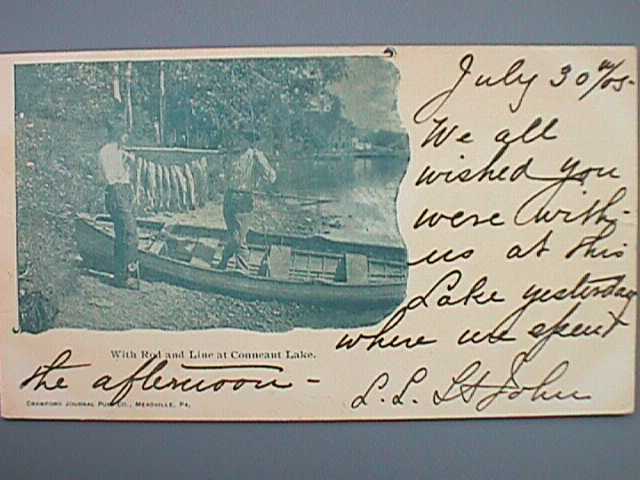 July 30th/05-
We all
wished you
were with-
us at this
Lake yesterday
where we spent
the afternoon-
L. L. St John
With Rod and Line at Conneaut Lake.
Crawford Journal Pub. Co., Meadville, Pa.